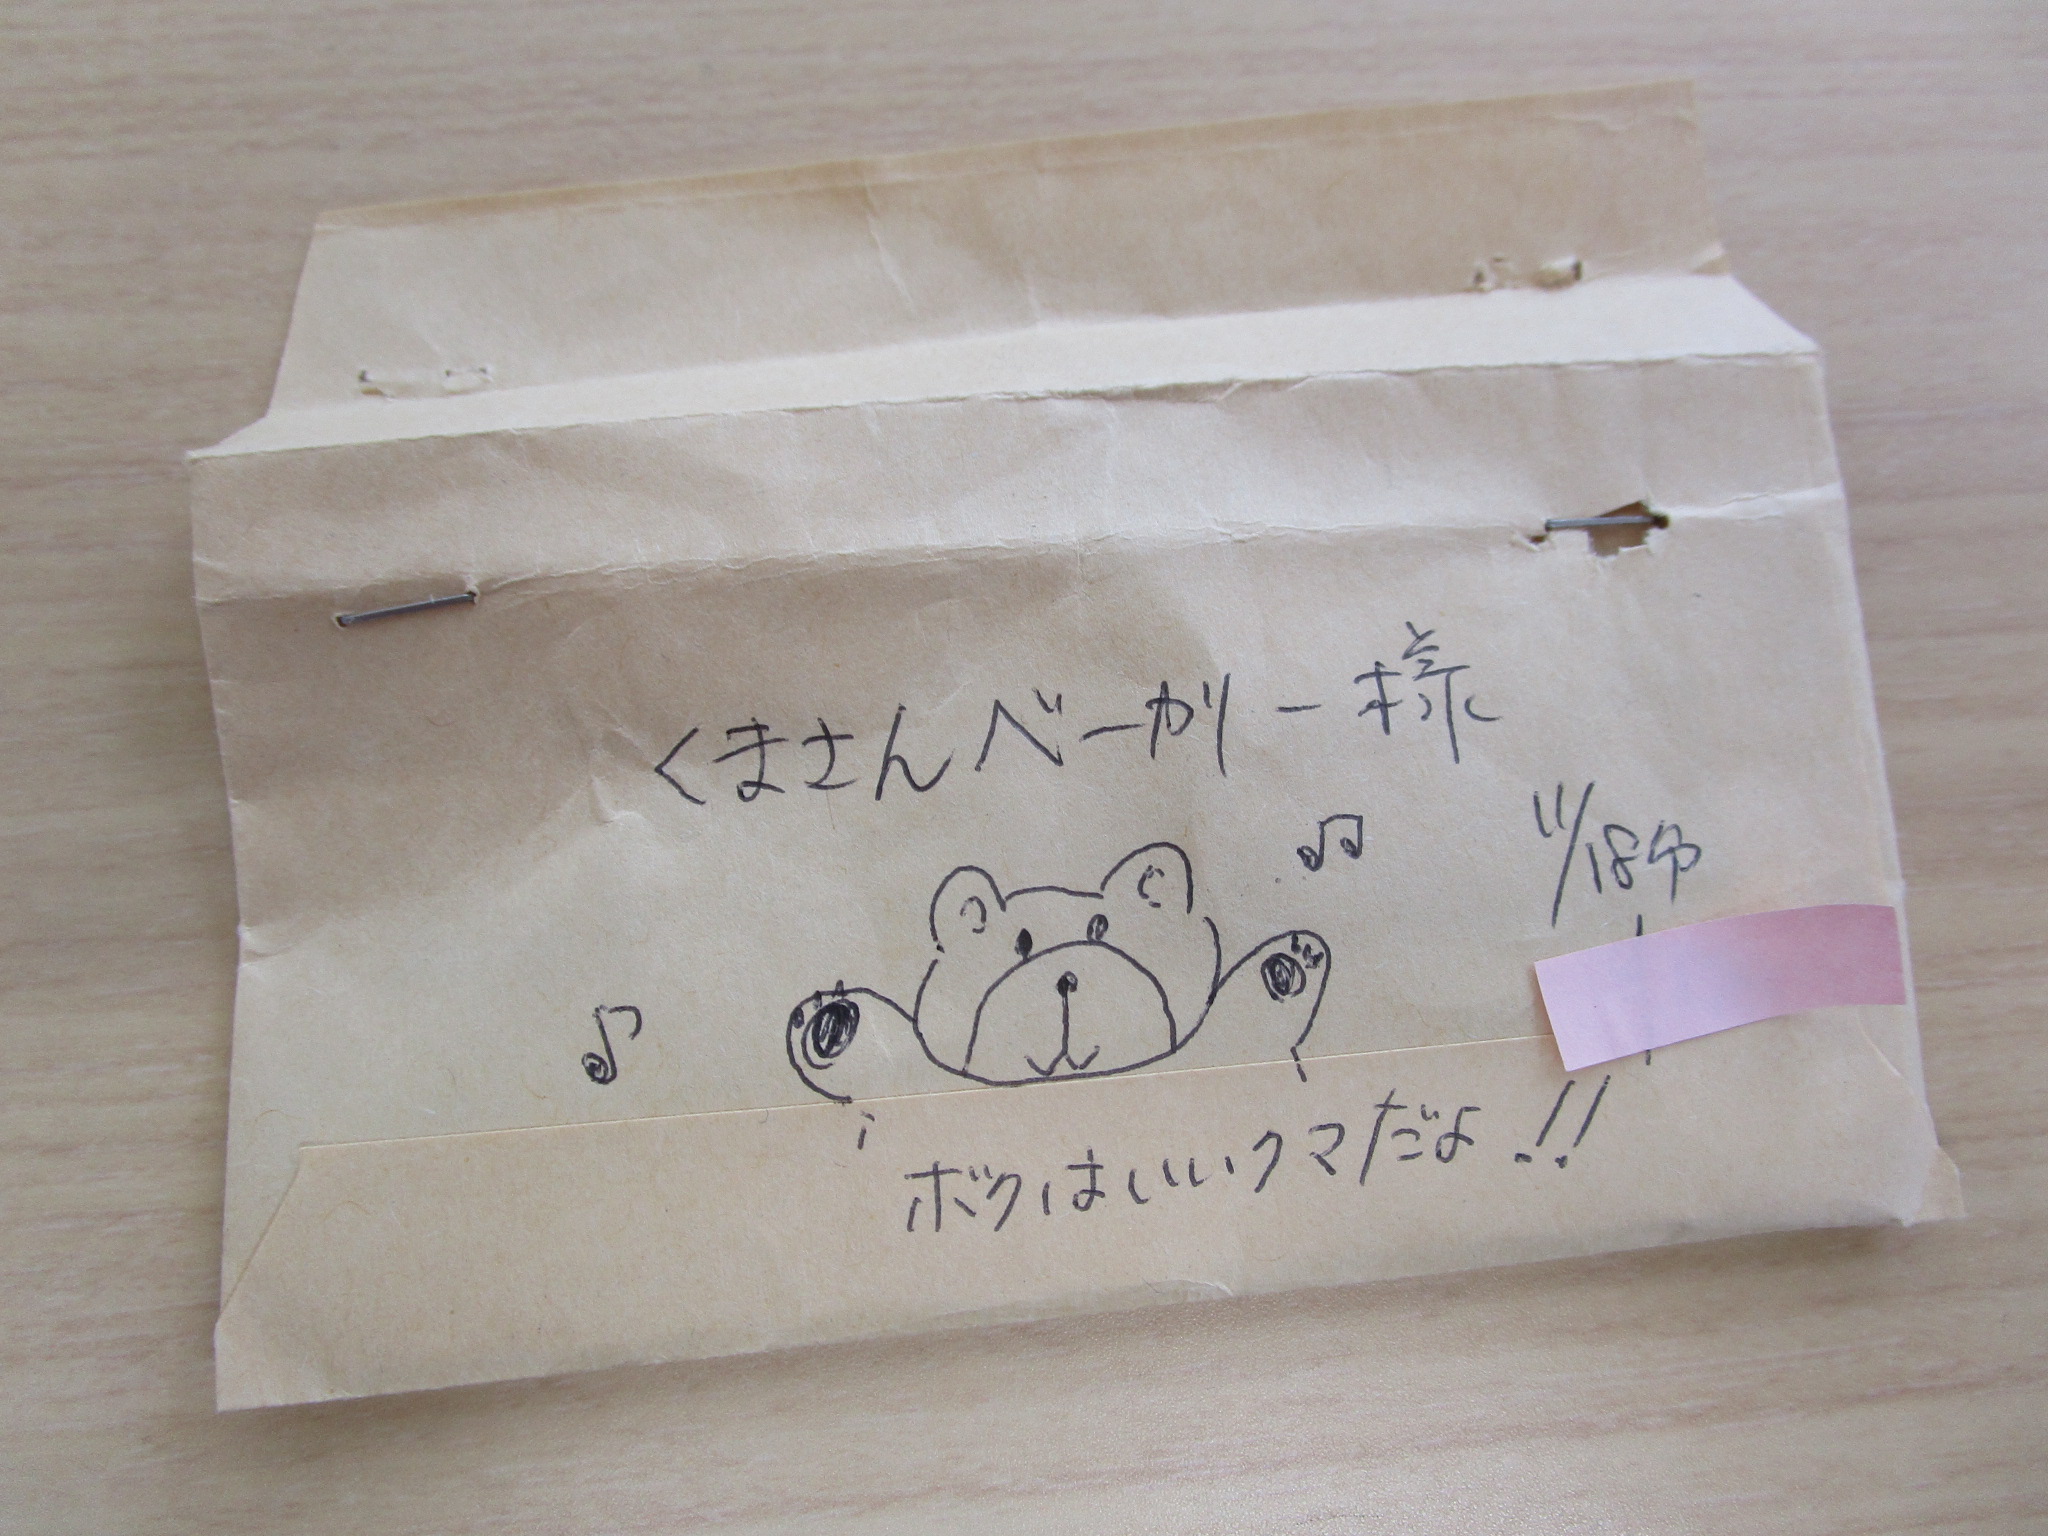 くまさんベーカリー様
11/18分
ボクはいいクマだよ!!